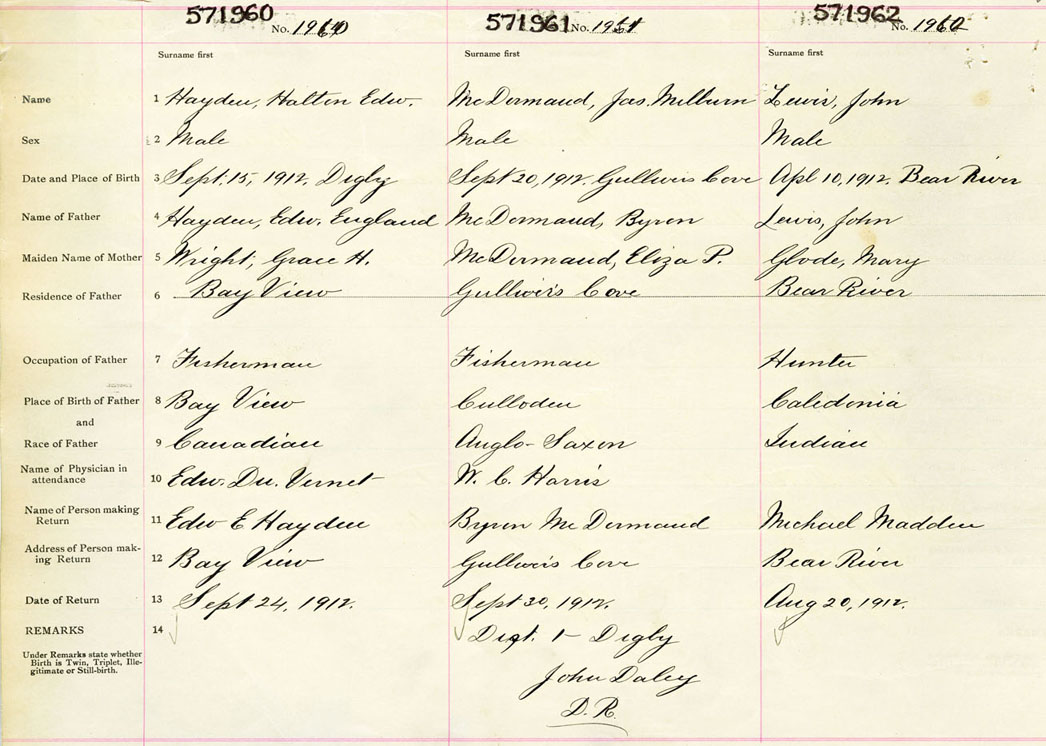 571960 No. 1960 571961 No. 1961 571962 No. 1962
Surname first Surname first Surname first
Name 1 Hayden, Halton Edw. McDormand, Jas. Milburn Lewis, John
Sex 2 Male Male Male
Date and Place of Birth 3 Sept. 15, 1912. Digby Sept 20, 1912. Gulliver's Cove Apl 10, 1912. Bear River
Name of Father 4 Hayden, Edw. England McDormand, Byron Lewis, John
Maiden Name of Mother 5 Wright, Grace H. McDormand, Eliza P. Glode, Mary
Residence of Father 6 Bay View Gulliver's Cove Bear River
Occupation of Father 7 Fisherman Fisherman Hunter
Place of Birth of Father 8 Bay View Culloden Caledonia
and
Race of Father 9 Canadian Anglo-Saxon Indian
Name of Physician in
attendance 10 Edw. Du. Vernet W. C. Harris
Name of Person making
Return 11 Edw E Hayden Byron McDormand Michael Madden
Address of Person mak-
ing Return 12 Bay View Gulliver's Cove Bear River
Date of Return 13 Sept 24, 1912. Sept 30, 1912. Aug 20, 1912.
REMARKS 14 Dist. 1 - Digby
Under Remarks state whether
Birth is Twin, Triplet, Ille-
gitimate or Still-birth.
John Daley
D. R.